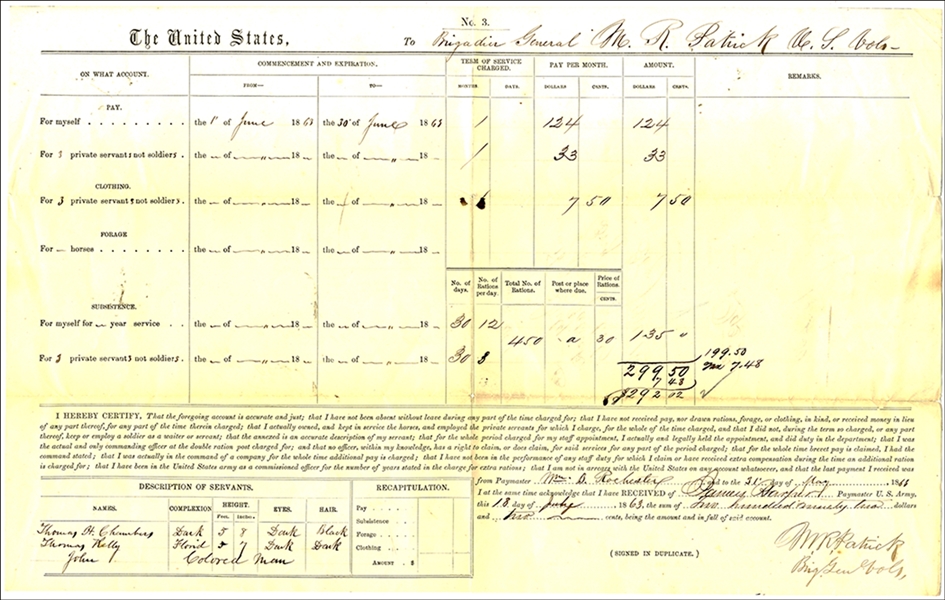 No. 3.
The United States,
To Brigadier General M. R. Patrick U. S. Vols-
ON WHAT ACCOUNT.
COMMENCEMENT AND EXPIRATION.
FROM—
TO—
TERM OF SERVICE CHARGED.
MONTHS
DAYS.
PAY PER MONTH.
DOLLARS
CENTS.
AMOUNT.
DOLLARS
CENTS.
REMARKS.
PAY.
For myself . . . . . . . . . the 1st of June 1863 the 30th of June 1863 1 124 124
For 3 private servants not soldiers . the — of —„— 18 — the — of —„— 18 — 1 33 33
CLOTHING.
For 3 private servants not soldiers . the — of —„— 18 — the — of —„— 18 — 7 50 7 50
FORAGE
For — horses . . . . . . . . the — of —„— 18 — the — of —„— 18 —
No. of days.
No. of Rations per day.
Total No. of Rations.
Post or place where due.
Price of Rations.
CENTS.
SUBSISTENCE.
For myself for — year service . . . the — of —„— 18 — the — of —„— 18 — 30 12
450 a 30 135 „
For 3 private servants not soldiers . the — of —„— 18 — the — of —„— 18 — 30 3
299 50
7 48
$292 02
199.50
7.48
I HEREBY CERTIFY, That the foregoing account is accurate and just; that I have not been absent without leave during any part of the time charged for; that I have not received pay, nor drawn rations, forage, or clothing, in kind, or received money in lieu
of any part thereof, for any part of the time therein charged; that I actually owned, and kept in service the horses, and employed the private servants for which I charge, for the whole of the time charged, and that I did not, during the term so charged, or any part
thereof, keep or employ a soldier as a waiter or servant; that the annexed is an accurate description of my servant; that for the whole period charged for my staff appointment, I actually and legally held the appointment, and did duty in the department; that I was
the actual and only commanding officer at the double ration post charged for; and that no officer, within my knowledge, has a right to claim, or does claim, for said services for any part of the period charged; that for the whole time brevet pay is claimed, I had the
command stated; that I was actually in the command of a company for the whole time additional pay is charged; that I have not been in the performance of any staff duty for which I claim or have received extra compensation during the time an additional ration
is charged for; that I have been in the United States army as a commissioned officer for the number of years stated in the charge for extra rations; that I am not in arrears with the United States on any account whatsoever, and that the last payment I received was
from Paymaster Wm. B. Rochester and to the 31 day of May 1863
I at the same time acknowledge that I have RECEIVED of Paymaster U. S. Army,
this 18 day of July 1863, the sum of Two hundred ninety two dollars
and two — cents, being the amount and in full of said account.
DESCRIPTION OF SERVANTS.
NAMES.
COMPLEXION
HEIGHT.
Feet. Inches.
EYES.
HAIR.
Thomas H. Chambers Dark 5 8 Dark Black
Thomas Kelly Florid 5 7 Dark Dark
John Colored Man
RECAPITULATION.
Pay - - -
Subsistence
Forage - -
Clothing - - -
AMOUNT . $
(SIGNED IN DUPLICATE.)
M R Patrick
Brig Gen Vols,